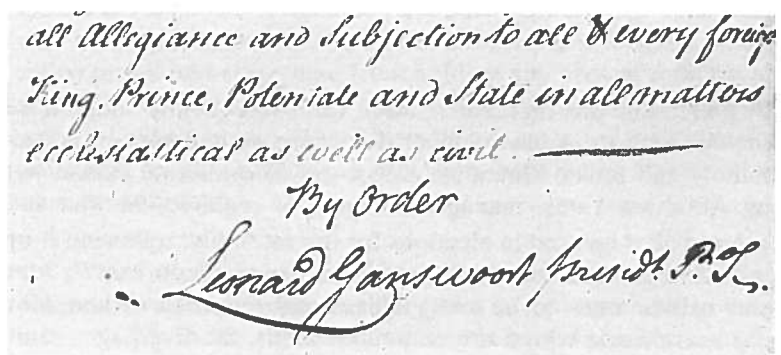 all Allegiance and Subjection to all & every foreign
King, Prince, Potentate and State in all matters
ecclesiastical as well as civil.
By Order
Leonard Gansevoort, Presidt. P. T.